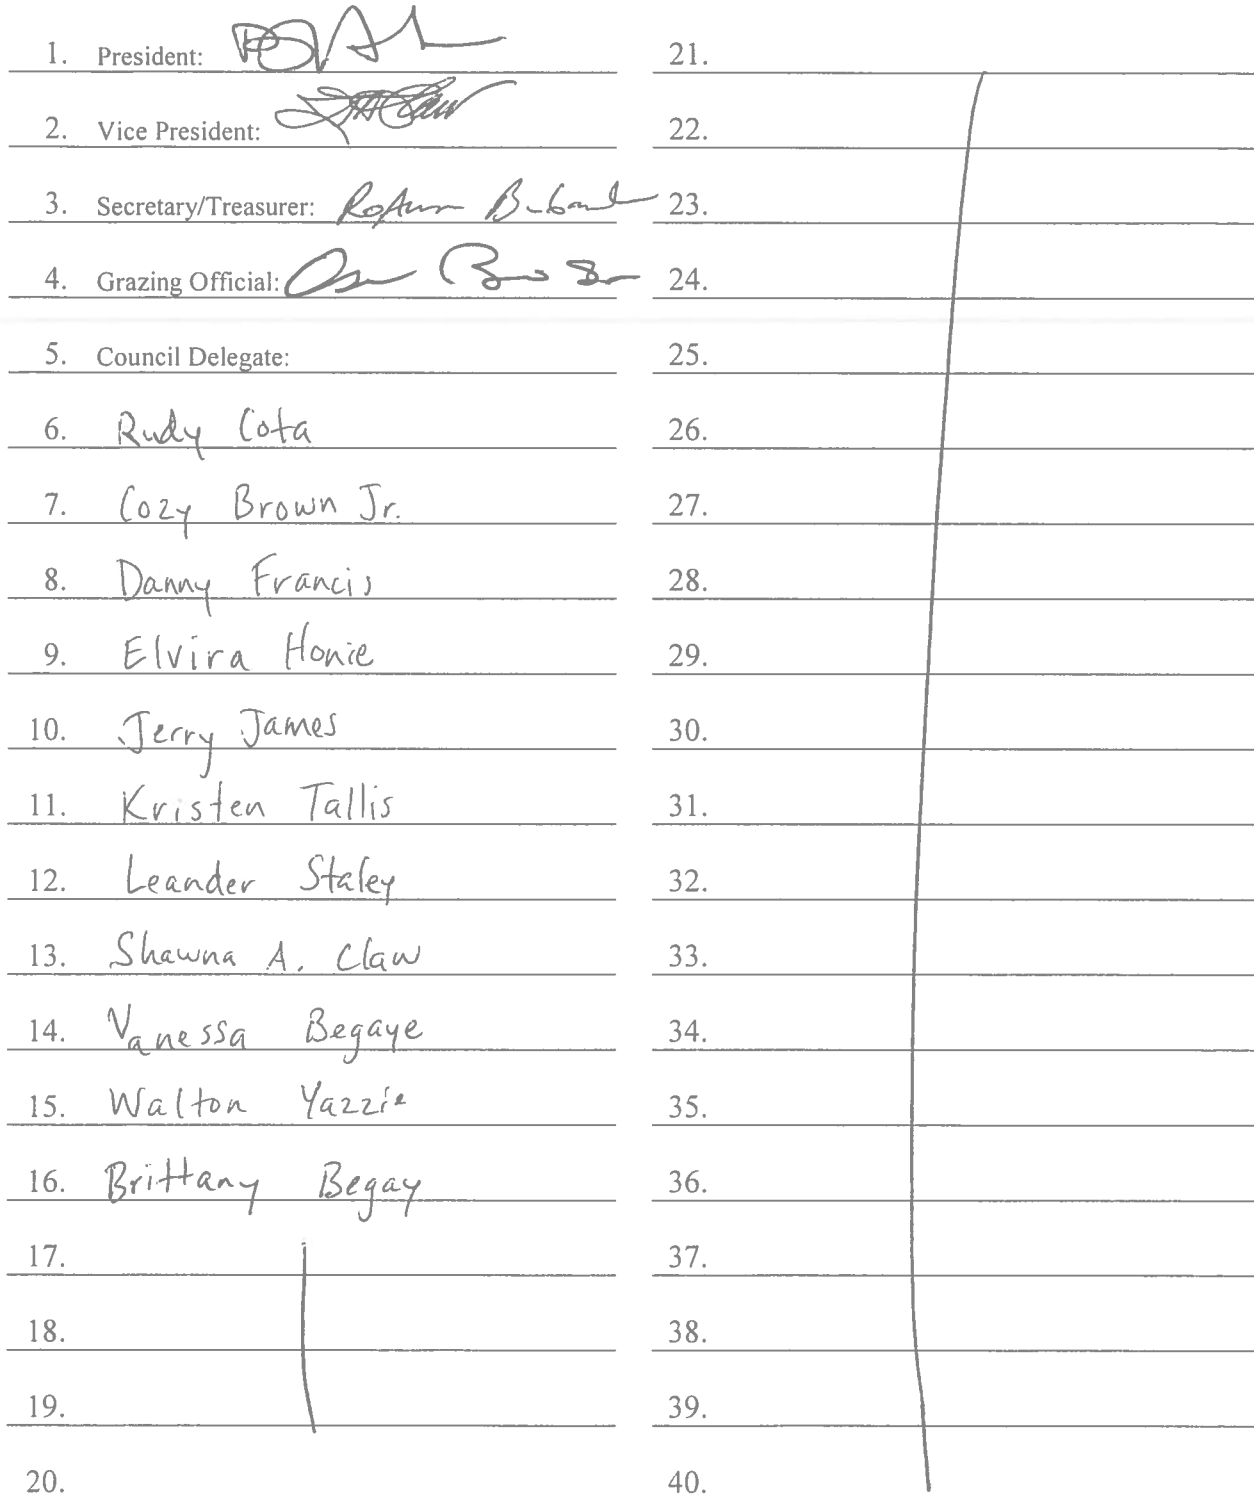 1. President:
2. Vice President:
3. Secretary/Treasurer:
4. Grazing Official:
5. Council Delegate:
6. Rudy Cota
7. Cozy Brown Jr.
8. Danny Francis
9. Elvira Honie
10. Jerry James
11. Kristen Tallis
12. Leander Staley
13. Shawna A. Claw
14. Vanessa Begaye
15. Walton Yazzie
16. Brittany Begay
17.
18.
19.
20.
21.
22.
23.
24.
25.
26.
27.
28.
29.
30.
31.
32.
33.
34.
35.
36.
37.
38.
39.
40.